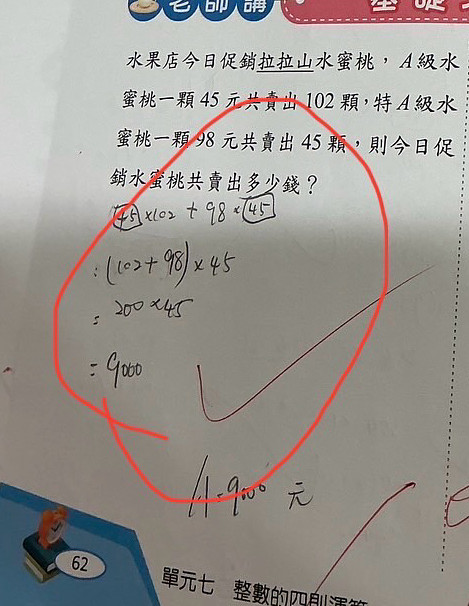 老師講
基礎
水果店今日促銷拉拉山水蜜桃，A級水
蜜桃一顆45元共賣出102顆，特A級水
蜜桃一顆98元共賣出45顆，則今日促
銷水蜜桃共賣出多少錢？
45×102+98×45
=(102+98)×45
=200×45
=9000
A=9000元
62
單元七 整數的四則運算